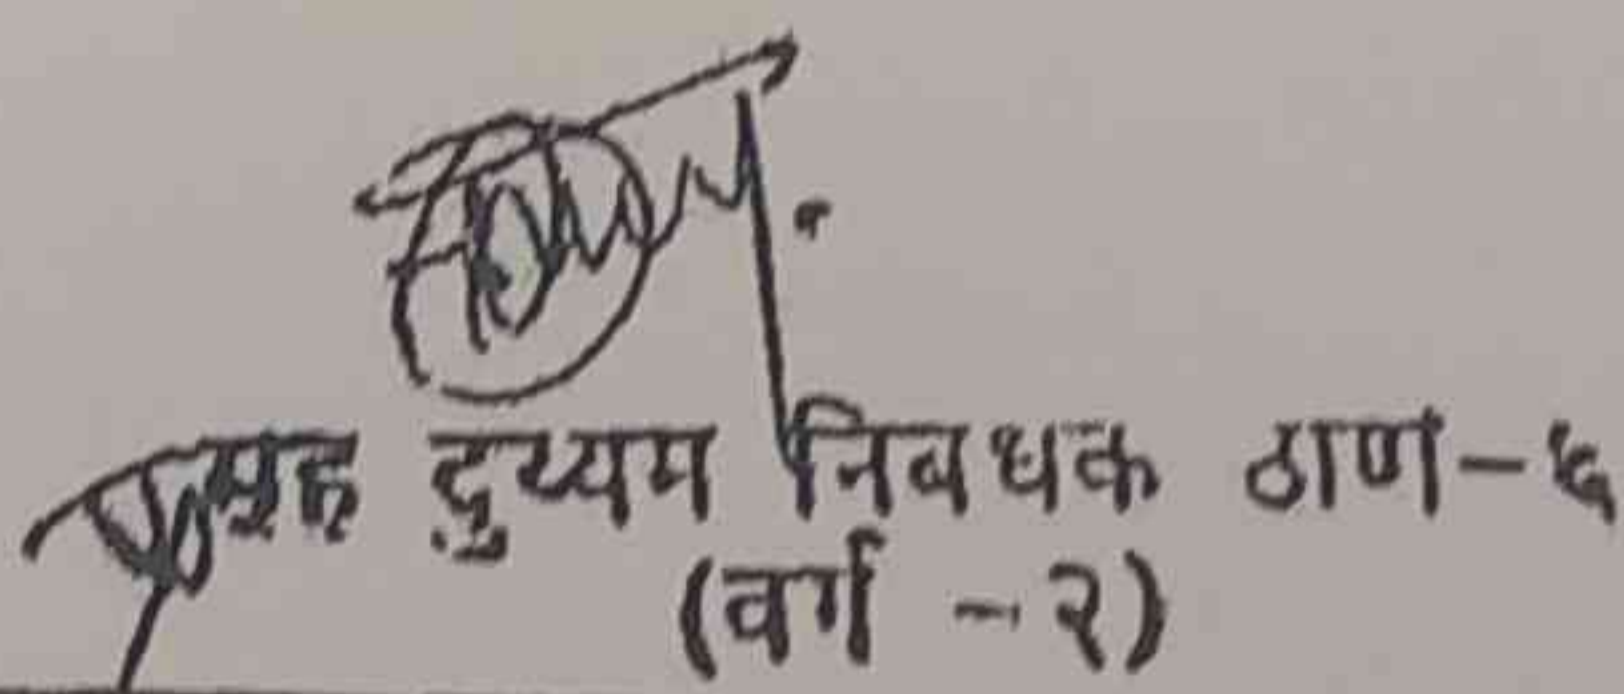 सह दुय्यम निबधक ठाणे-५
(वर्ग -२)